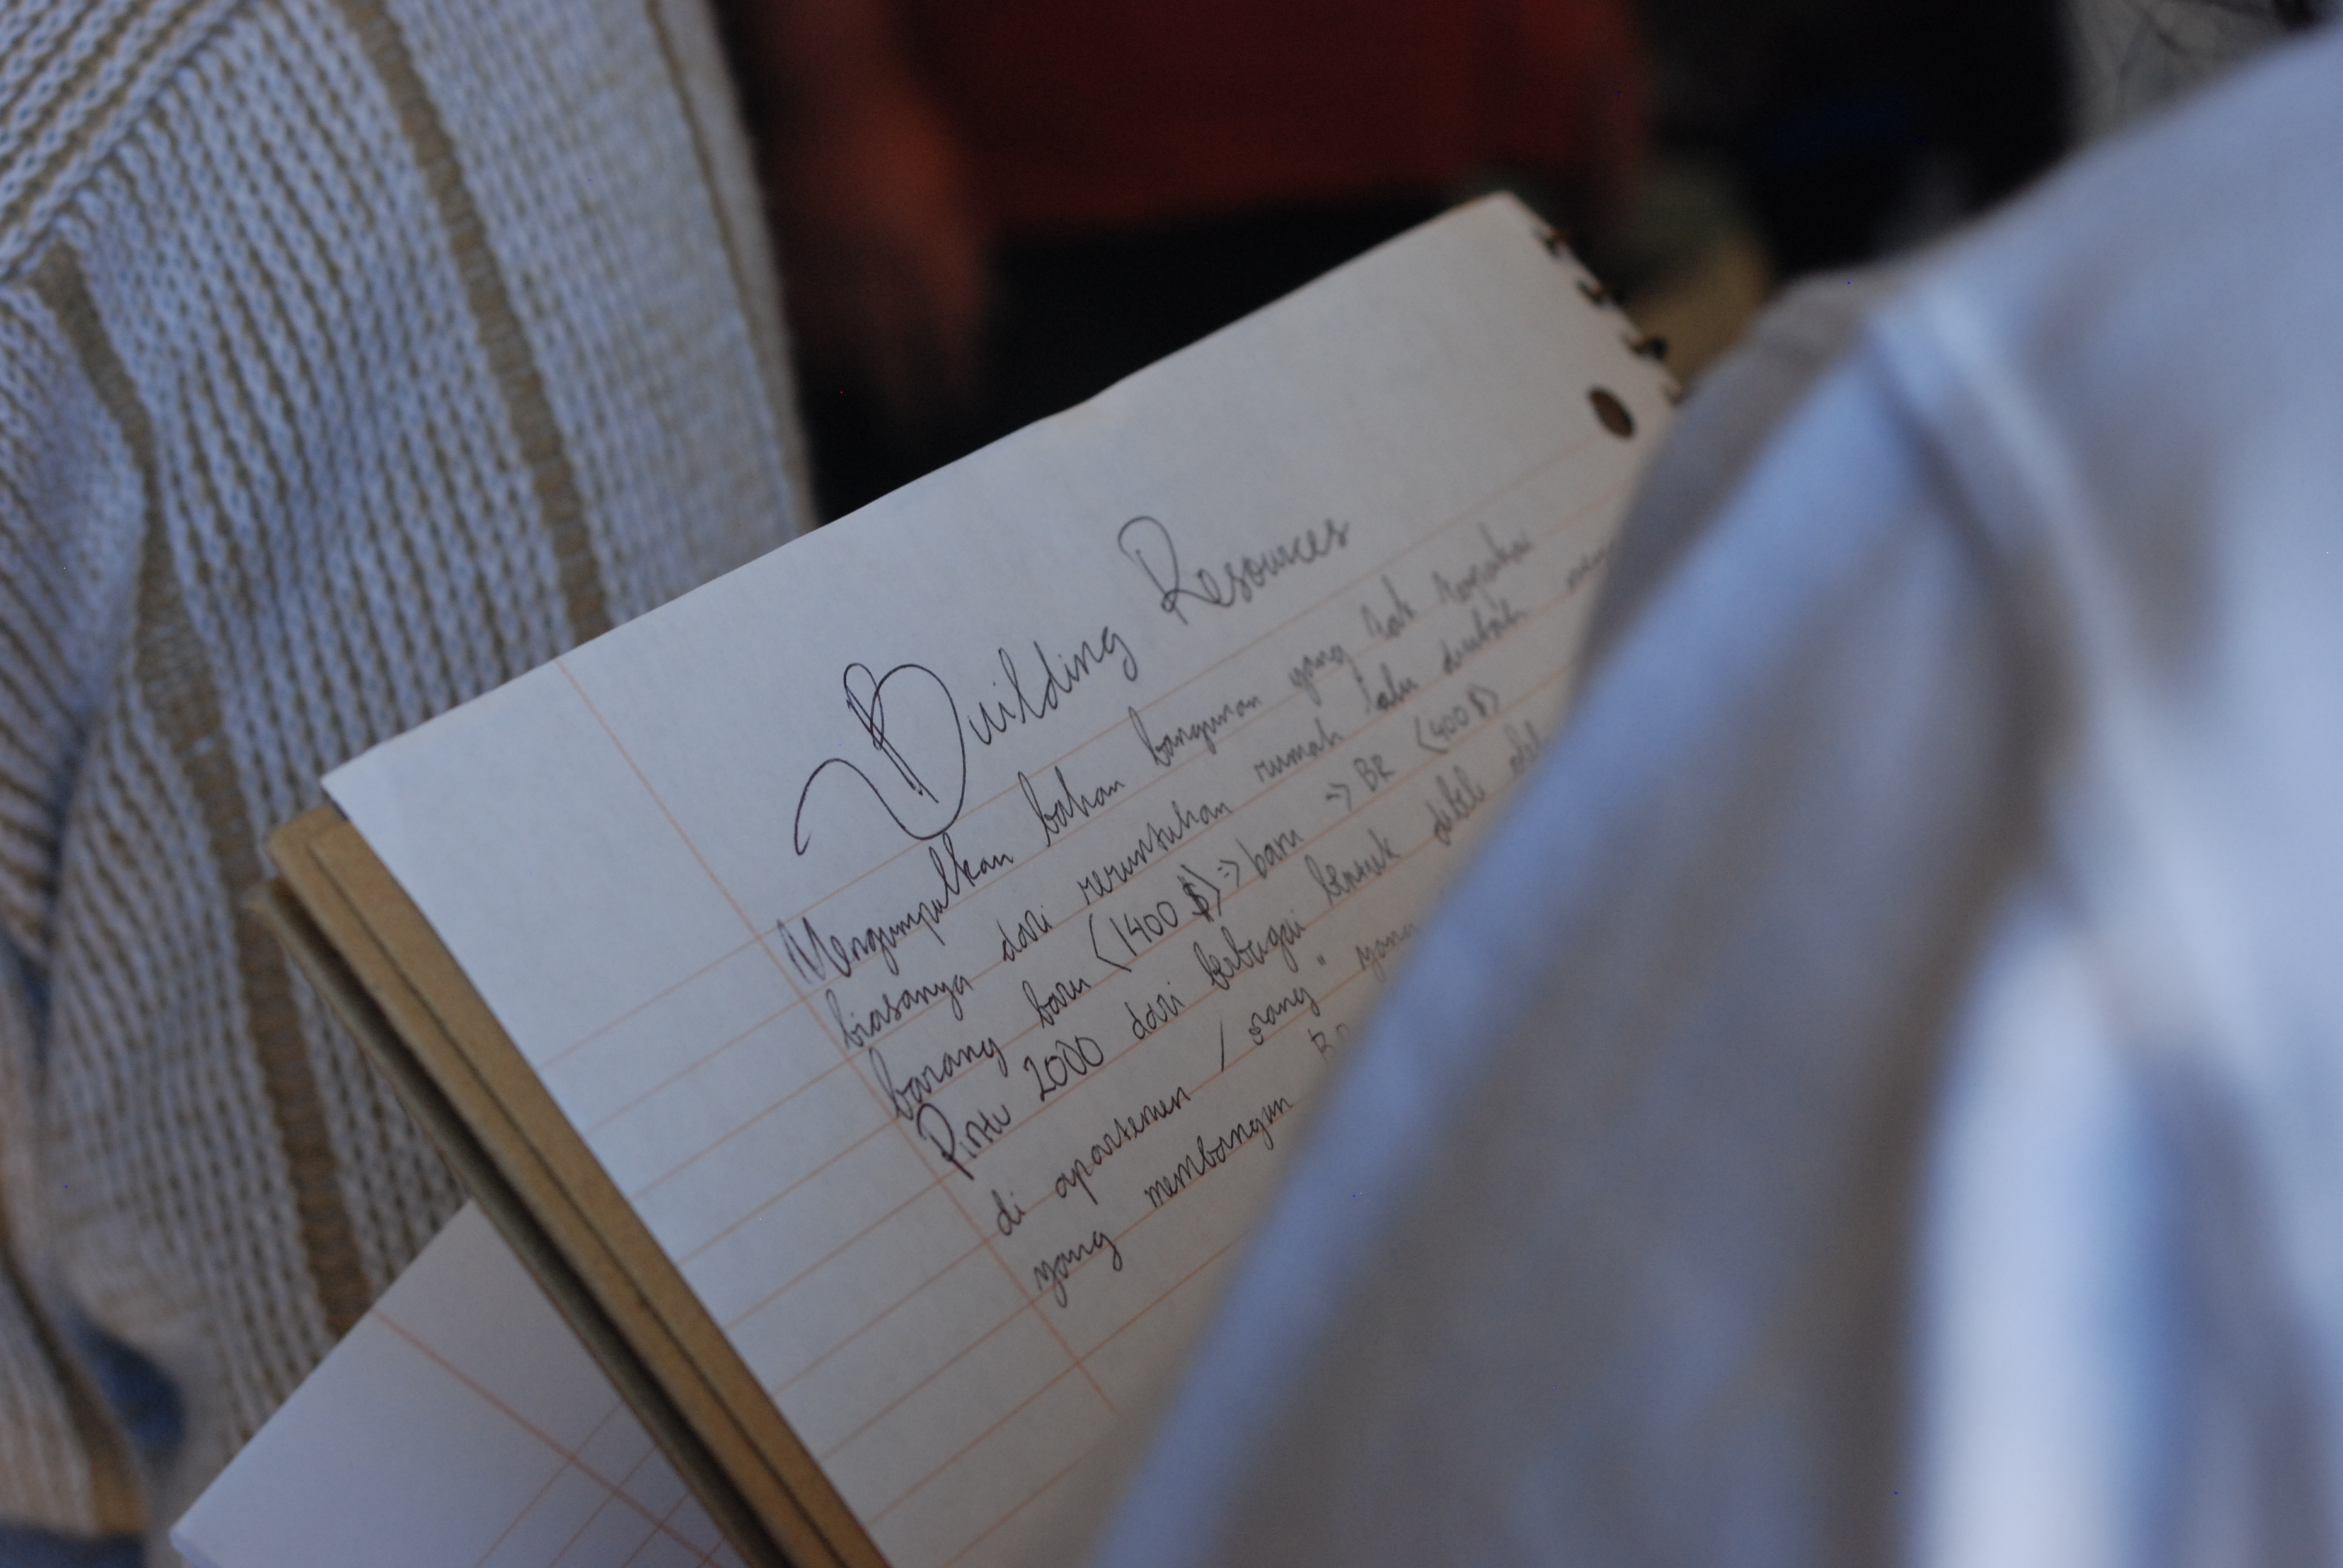 Building Resources
Mengumpulkan bahan bangunan yang tak terpakai
biasanya dari reruntuhan rumah lalu diubah
barang baru (1400 $) => baru => BR (400 $)
Pintu 2000 dari berbagai bentuk
di apartemen / orang " yang
yang membangun